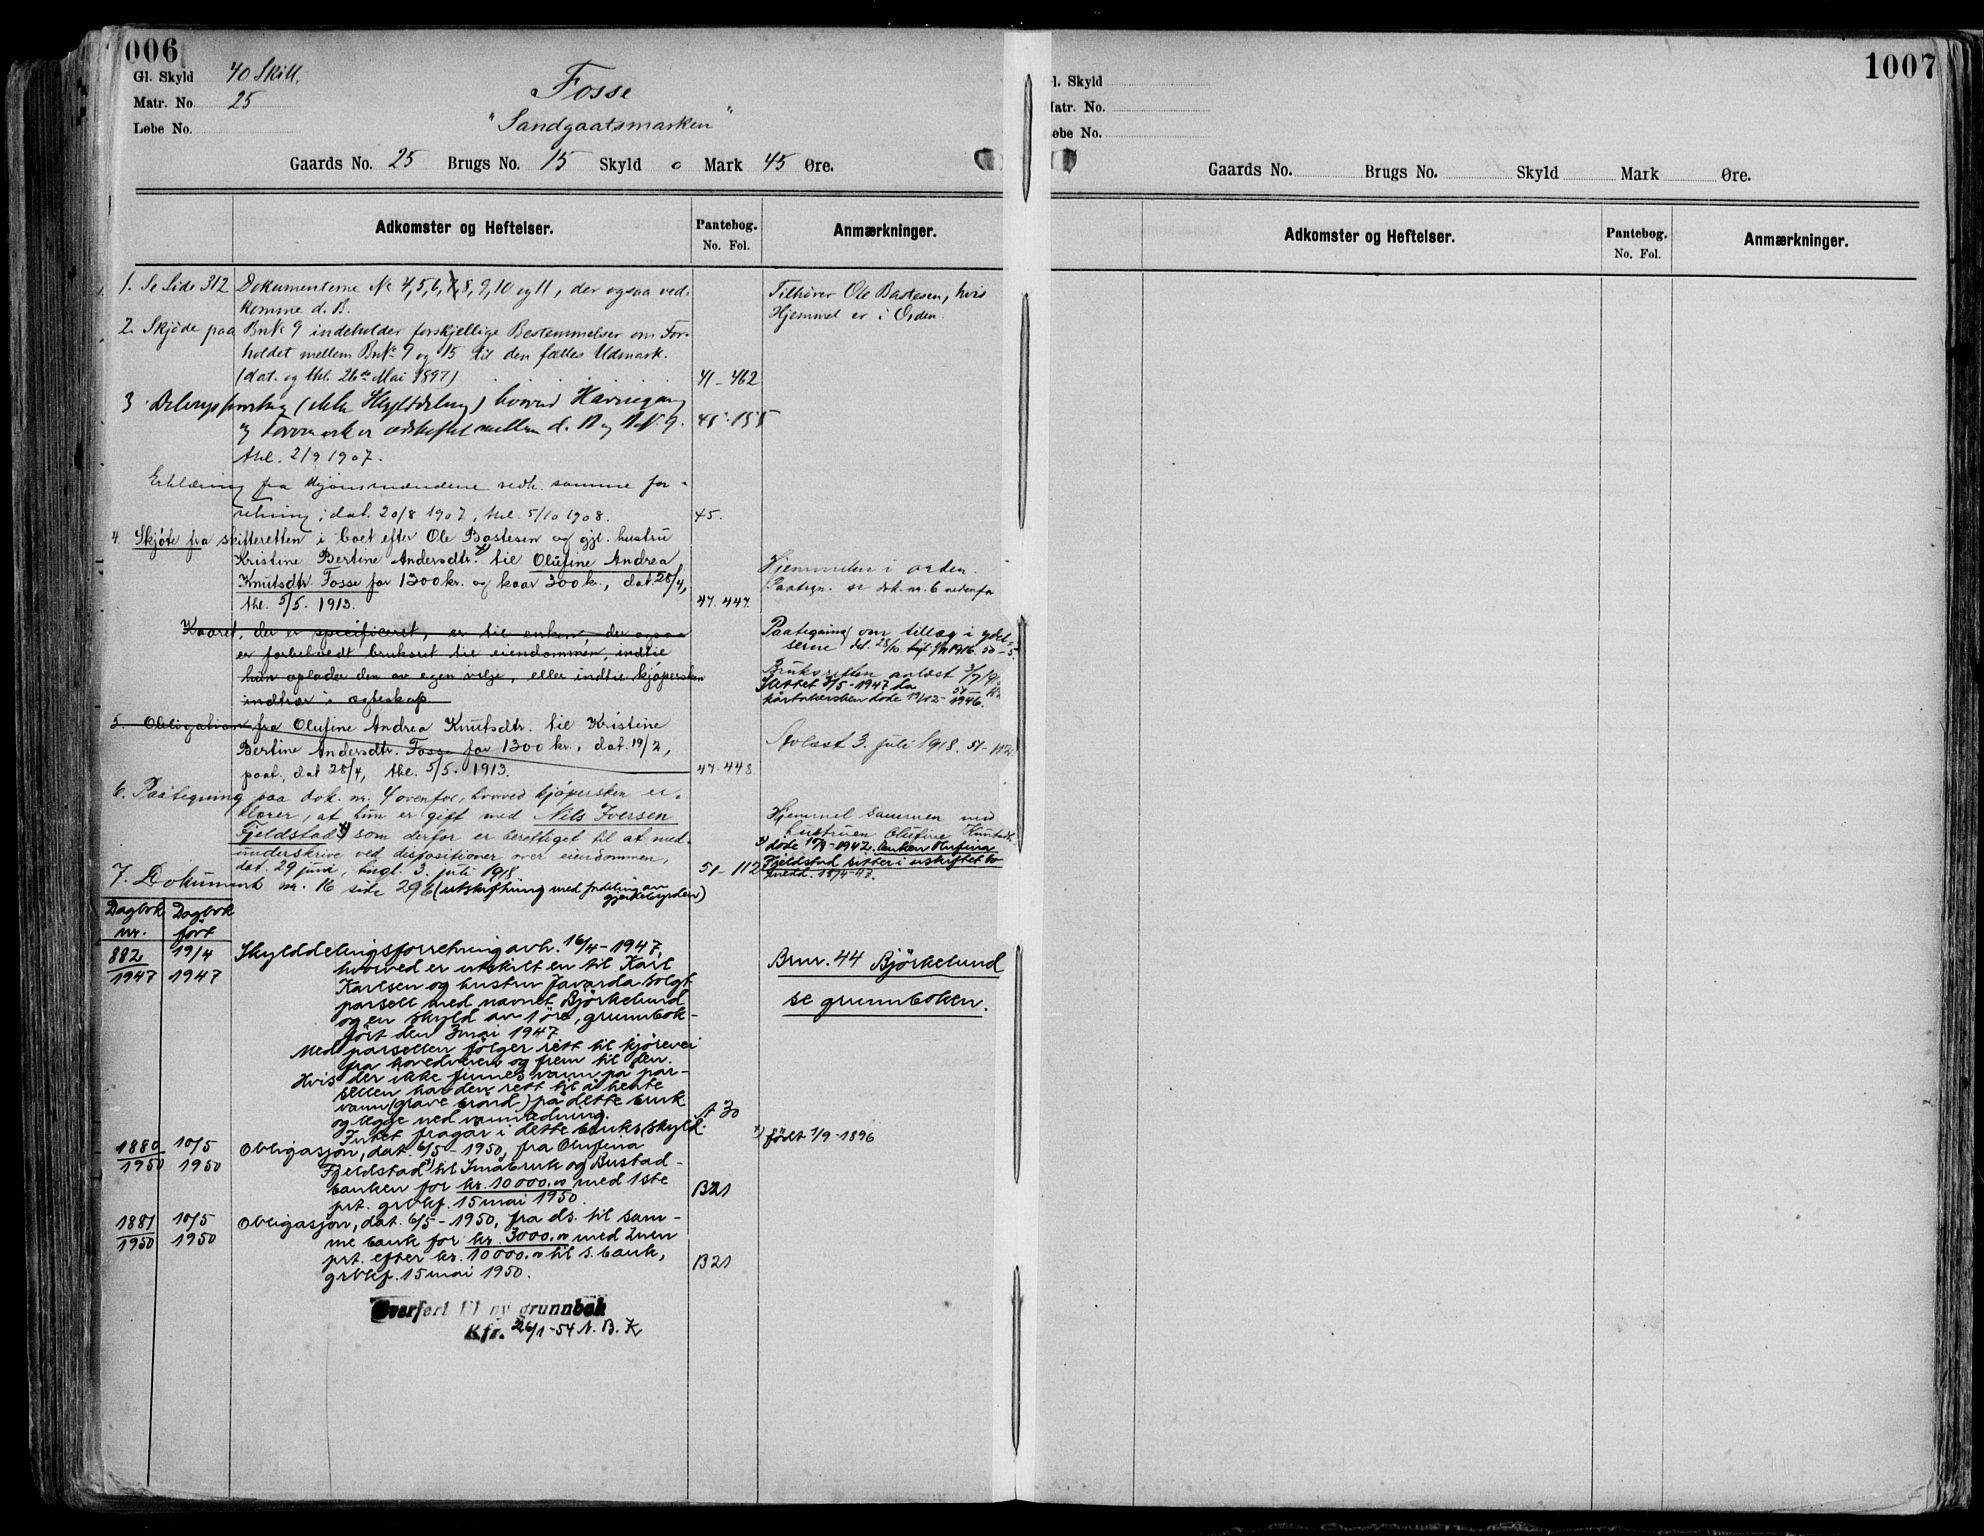 006
Gl. Skyld 40 Skill.
Matr. No. 25
Løbe No.
Fosse
"Sandgaatsmarken"
Gaards No. 25 Brugs No. 15 Skyld 0 Mark 45 Øre.
Adkomster og Heftelser.
Pantebog.
No. Fol.
Anmærkninger.
1. Se Side 312 Dokumenterne No 4, 5, 6, 7, 8, 9, 10 og 11, der ogsaa ved-
komme d. B.
Tilhører Ole Bastesen, hvis
Hjemmel er i Orden.
2. Skjøde paa Bnk 9 indeholder forskjellige Bestemmelser om For-
holdet mellem Bnk. 9 og 15 til den fælles Udmark.
(dat. og thl. 26de Mai 1897) 41-462
3 Delings (uden Skylddeling) hvorved Havnegang
og er udskiftet mellem d. B og B.N. 9. 45-155
thl. 2/9 1907.
Erklæring fra Mjønsmændene vedk. samme for-
retning; dat. 20/8 1907, thl. 5/10 1908. 45.
4. Skjøte fra skifteretten i boet efter Ole Bastesen og gjl. hustru
Kristine Bertine Andersdtr. x) til Olufine Andrea
Knutsdtr. Fosse for 1300 kr. og kaar 300 k., dat. 28/4,
thl. 5/5. 1913. 47.447.
Hjemmelen i orden.
Paategn. se dok. nr. 6 nedenfor
Kaaret, der er specificeret, er til enken, der ogsaa
er forbeholdt bruksret til eiendommen, indtil
hun oplader den av egen vilje, eller indtil kjøpersken
indtrær i ægteskap
Paategning om tillæg i ydel-
serne dat. 28/10 1916. 50-5.
Bruksretten avløst 3/7
Slettet 3/5-1947 da
kårtakersken døde 19/12-1946.
5. Obligation fra Olufine Andrea Knutsdtr. til Kristine
Bertine Andersdtr. Fosse for 1300 kr., dat. 19/2,
paat. dat 28/4, thl. 5/5. 1913. 47.448
Avløst 3. juli 1918. 51-112
6. Paategning paa dok. nr. 4 ovenfor, hvorved kjøpersken er-
klærer, at hun er gift med Nils Iversen
Fjeldstad x) som derfor er berettiget til at med-
underskrive ved dispositioner over eiendommen,
dat. 29 juni, tingl. 3. juli 1918. 51-112
Hjemmel sammen med
hustruen Olufine Knutsdtr.
x) døde 1942. Enken Olufina
Fjeldstad sitter i uskiftet bo
7. Dokument nr. 16 side 296 (utskiftning med fordeling av
gjerdebyrden)
Dagbok nr. Dagbok ført
882/1947 19/4 1947 Skylddelingsforretning avh. 16/4-1947,
hvorved er utskilt en til Karl
Karlsen og hustru Javarda solgt
parsell med navnet Bjørkelund
og en skyld av 1 øre, grunnbok-
ført den 3 mai 1947.
Med parsellen følger rett til kjørevei
fra hovedveien og frem til den.
Hvis der ikke finnes vann på par-
sellen har den rett til å hente
vann (grave brønd) på dette bruk
og legge ned vannledning.
Intet fragår i dette bruks skyld. A 30
Brnr. 44 Bjørkelund
se grunnboken.
1880/1950 10/5 1950 Obligasjon, dat. 6/5-1950, fra Olufina
Fjeldstad x) til Småbruk og Bustad-
banken for kr. 10000.00 med 1ste
prt. grbkf. 15 mai 1950. B21
x) født 7/9-1896
1881/1950 10/5 1950 Obligasjon, dat. 6/5-1950, fra ds. til sam-
me bank for kr. 3000.00 med 2nen
prt. efter kr. 10000.00 til s. bank,
grbkf. 15 mai 1950. B21
Overført til ny grunnbok
Kfr. 26/1-54 N. B. K
1007
Gl. Skyld
Matr. No.
Løbe No.
Gaards No. Brugs No. Skyld Mark Øre.
Adkomster og Heftelser.
Pantebog.
No. Fol.
Anmærkninger.